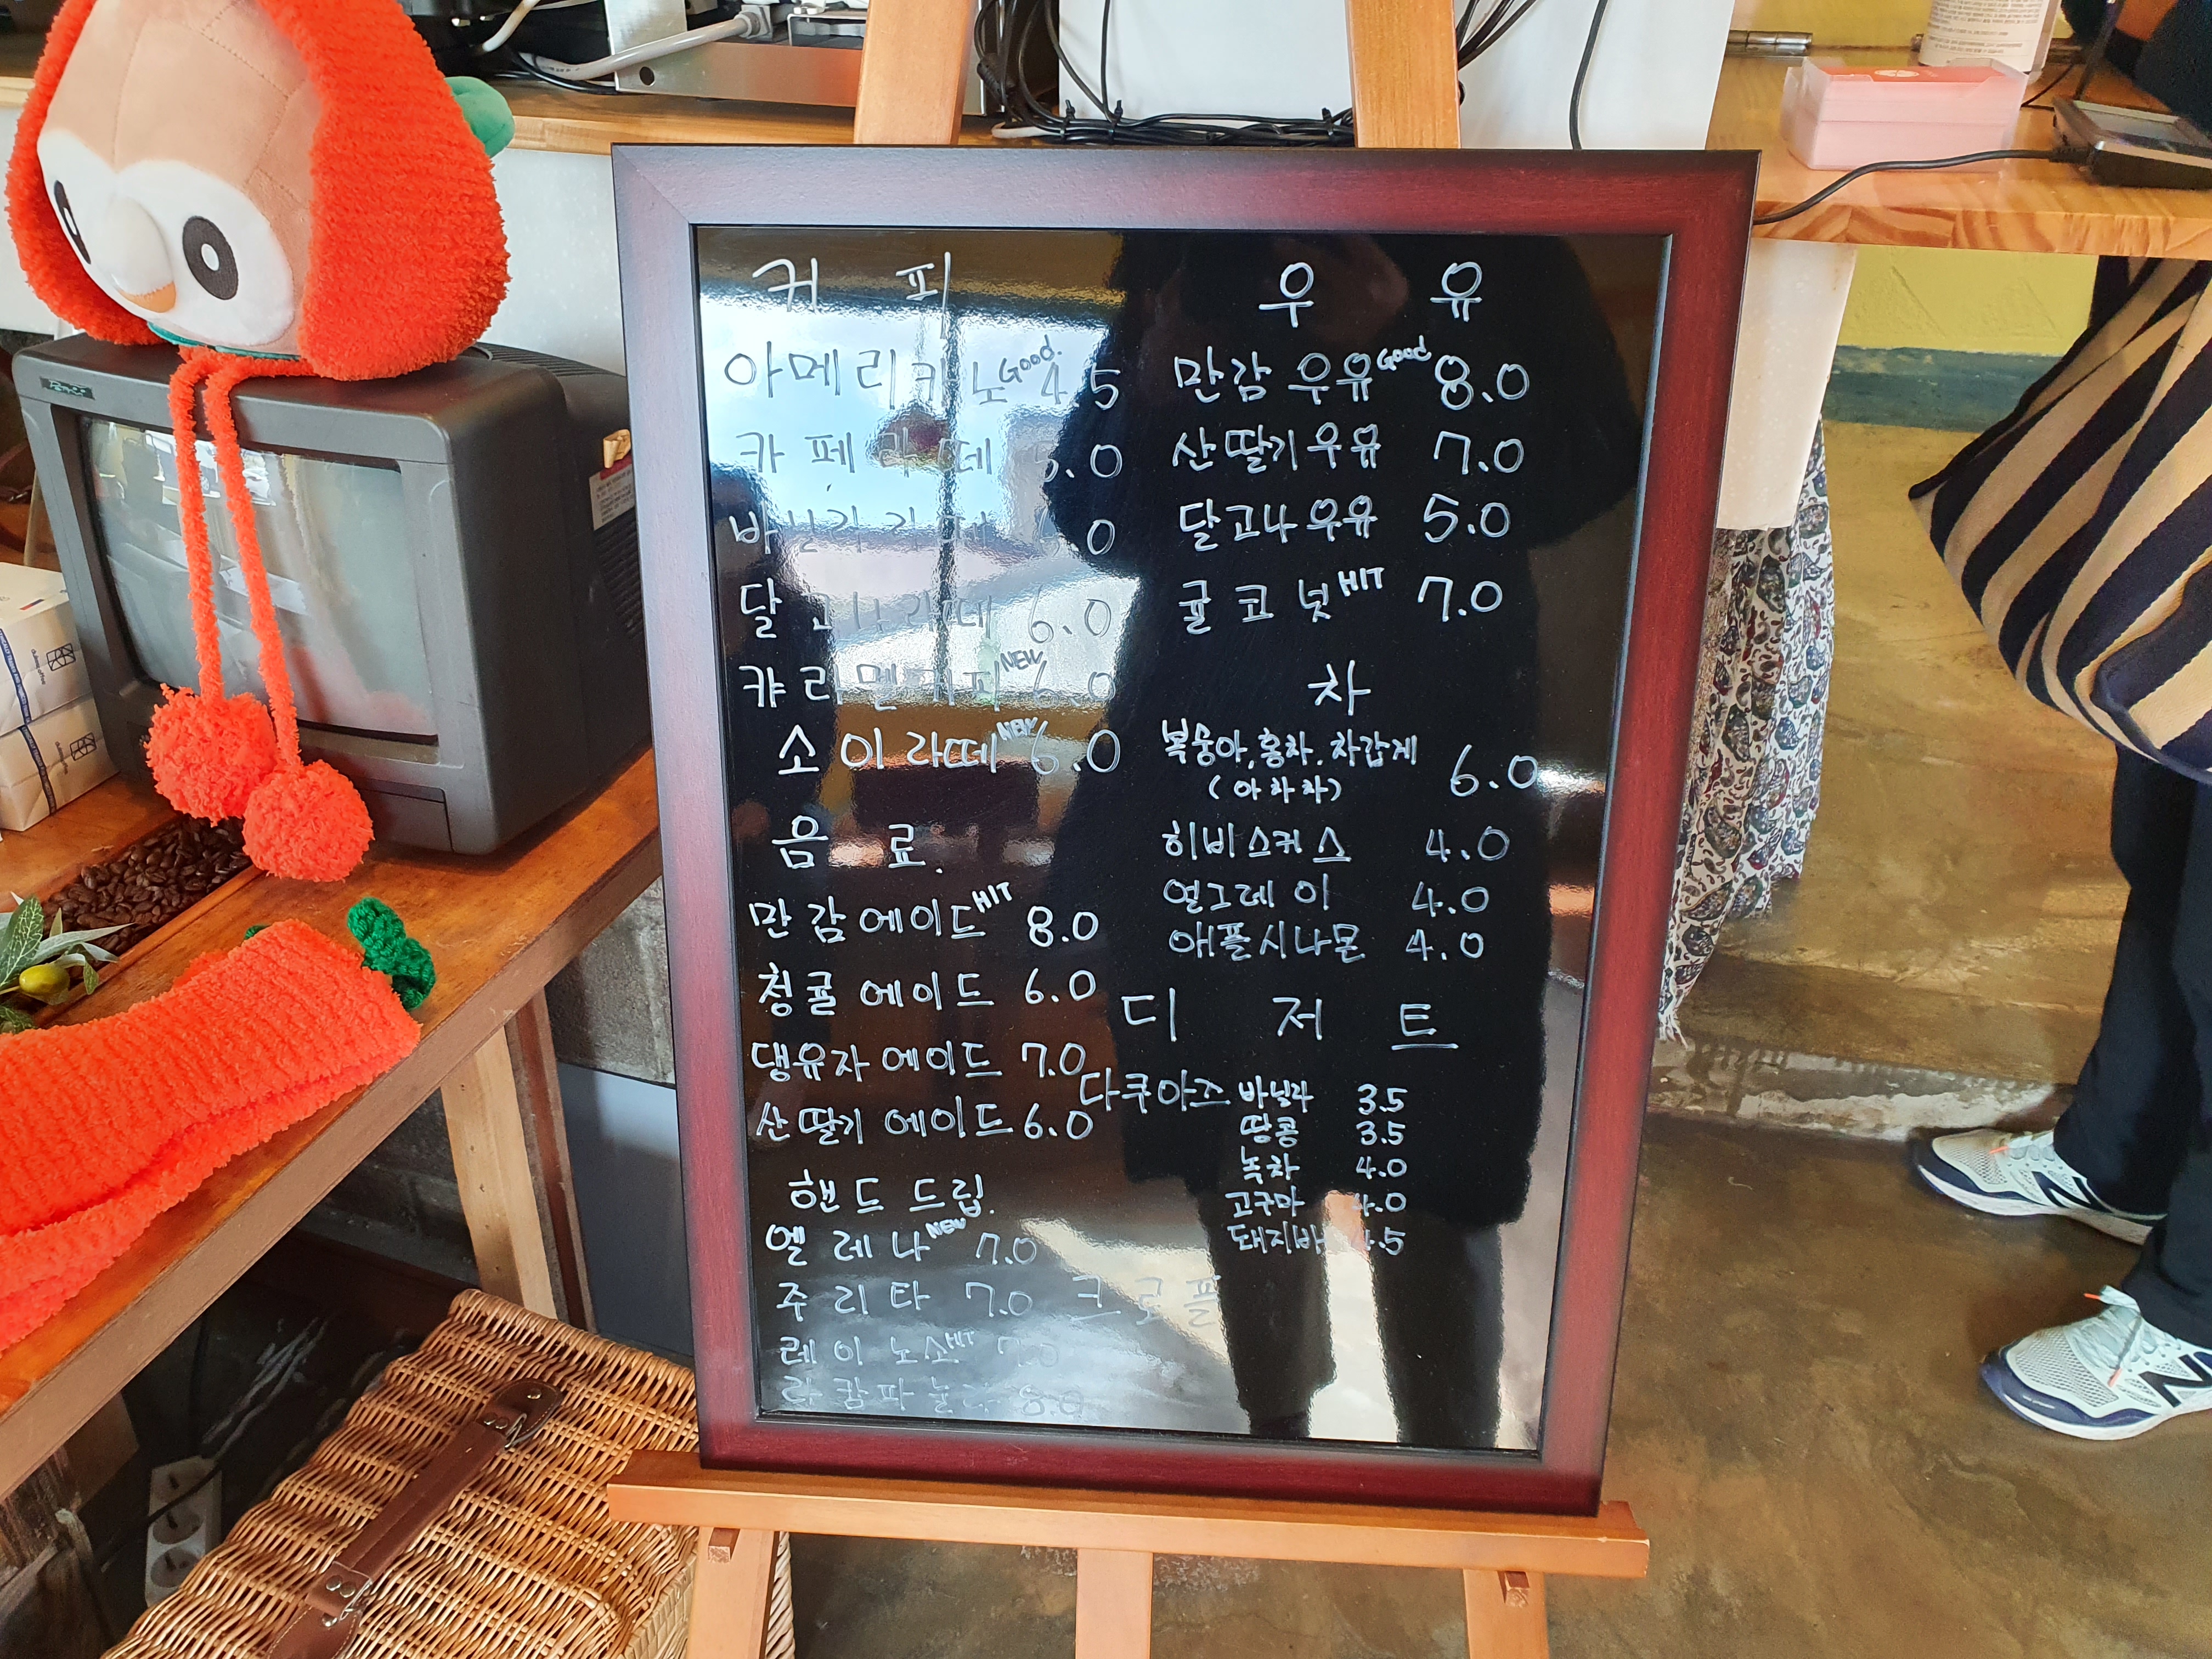 커 피
아메리카노 Good. 4.5
카페라떼 5.0
바닐라라떼 .0
달고나라떼 6.0
캬라멜커피 NEW 6.0
소이라떼 NEW 6.0
음 료.
만감에이드 HIT 8.0
청귤에이드 6.0
댕유자에이드 7.0
산딸기에이드 6.0
핸드드립.
엘레나 NEW 7.0
주리타 7.0
레이노소 HIT 7.0
8.0
우 유
만감우유 Good 8.0
산딸기우유 7.0
달고나우유 5.0
귤코넛 HIT 7.0
차
복숭아,홍차.차갑게 6.0
(아차차)
히비스커스 4.0
얼그레이 4.0
애플시나몬 4.0
디 저 트
다쿠아즈 바닐라 3.5
땅콩 3.5
녹차 4.0
고구마 4.0
돼지바 4.5
크로플